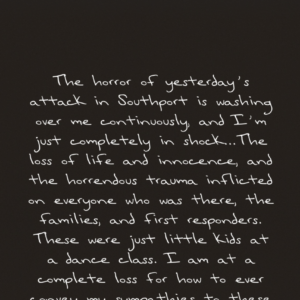 The horror of yesterday's
attack in Southport is washing
over me continuously, and I'm
just completely in shock...The
loss of life and innocence, and
the horrendous trauma inflicted
on everyone who was there, the
families, and first responders.
These were just little kids at
a dance class. I am at a
complete loss for how to ever
convey my sympathies to these